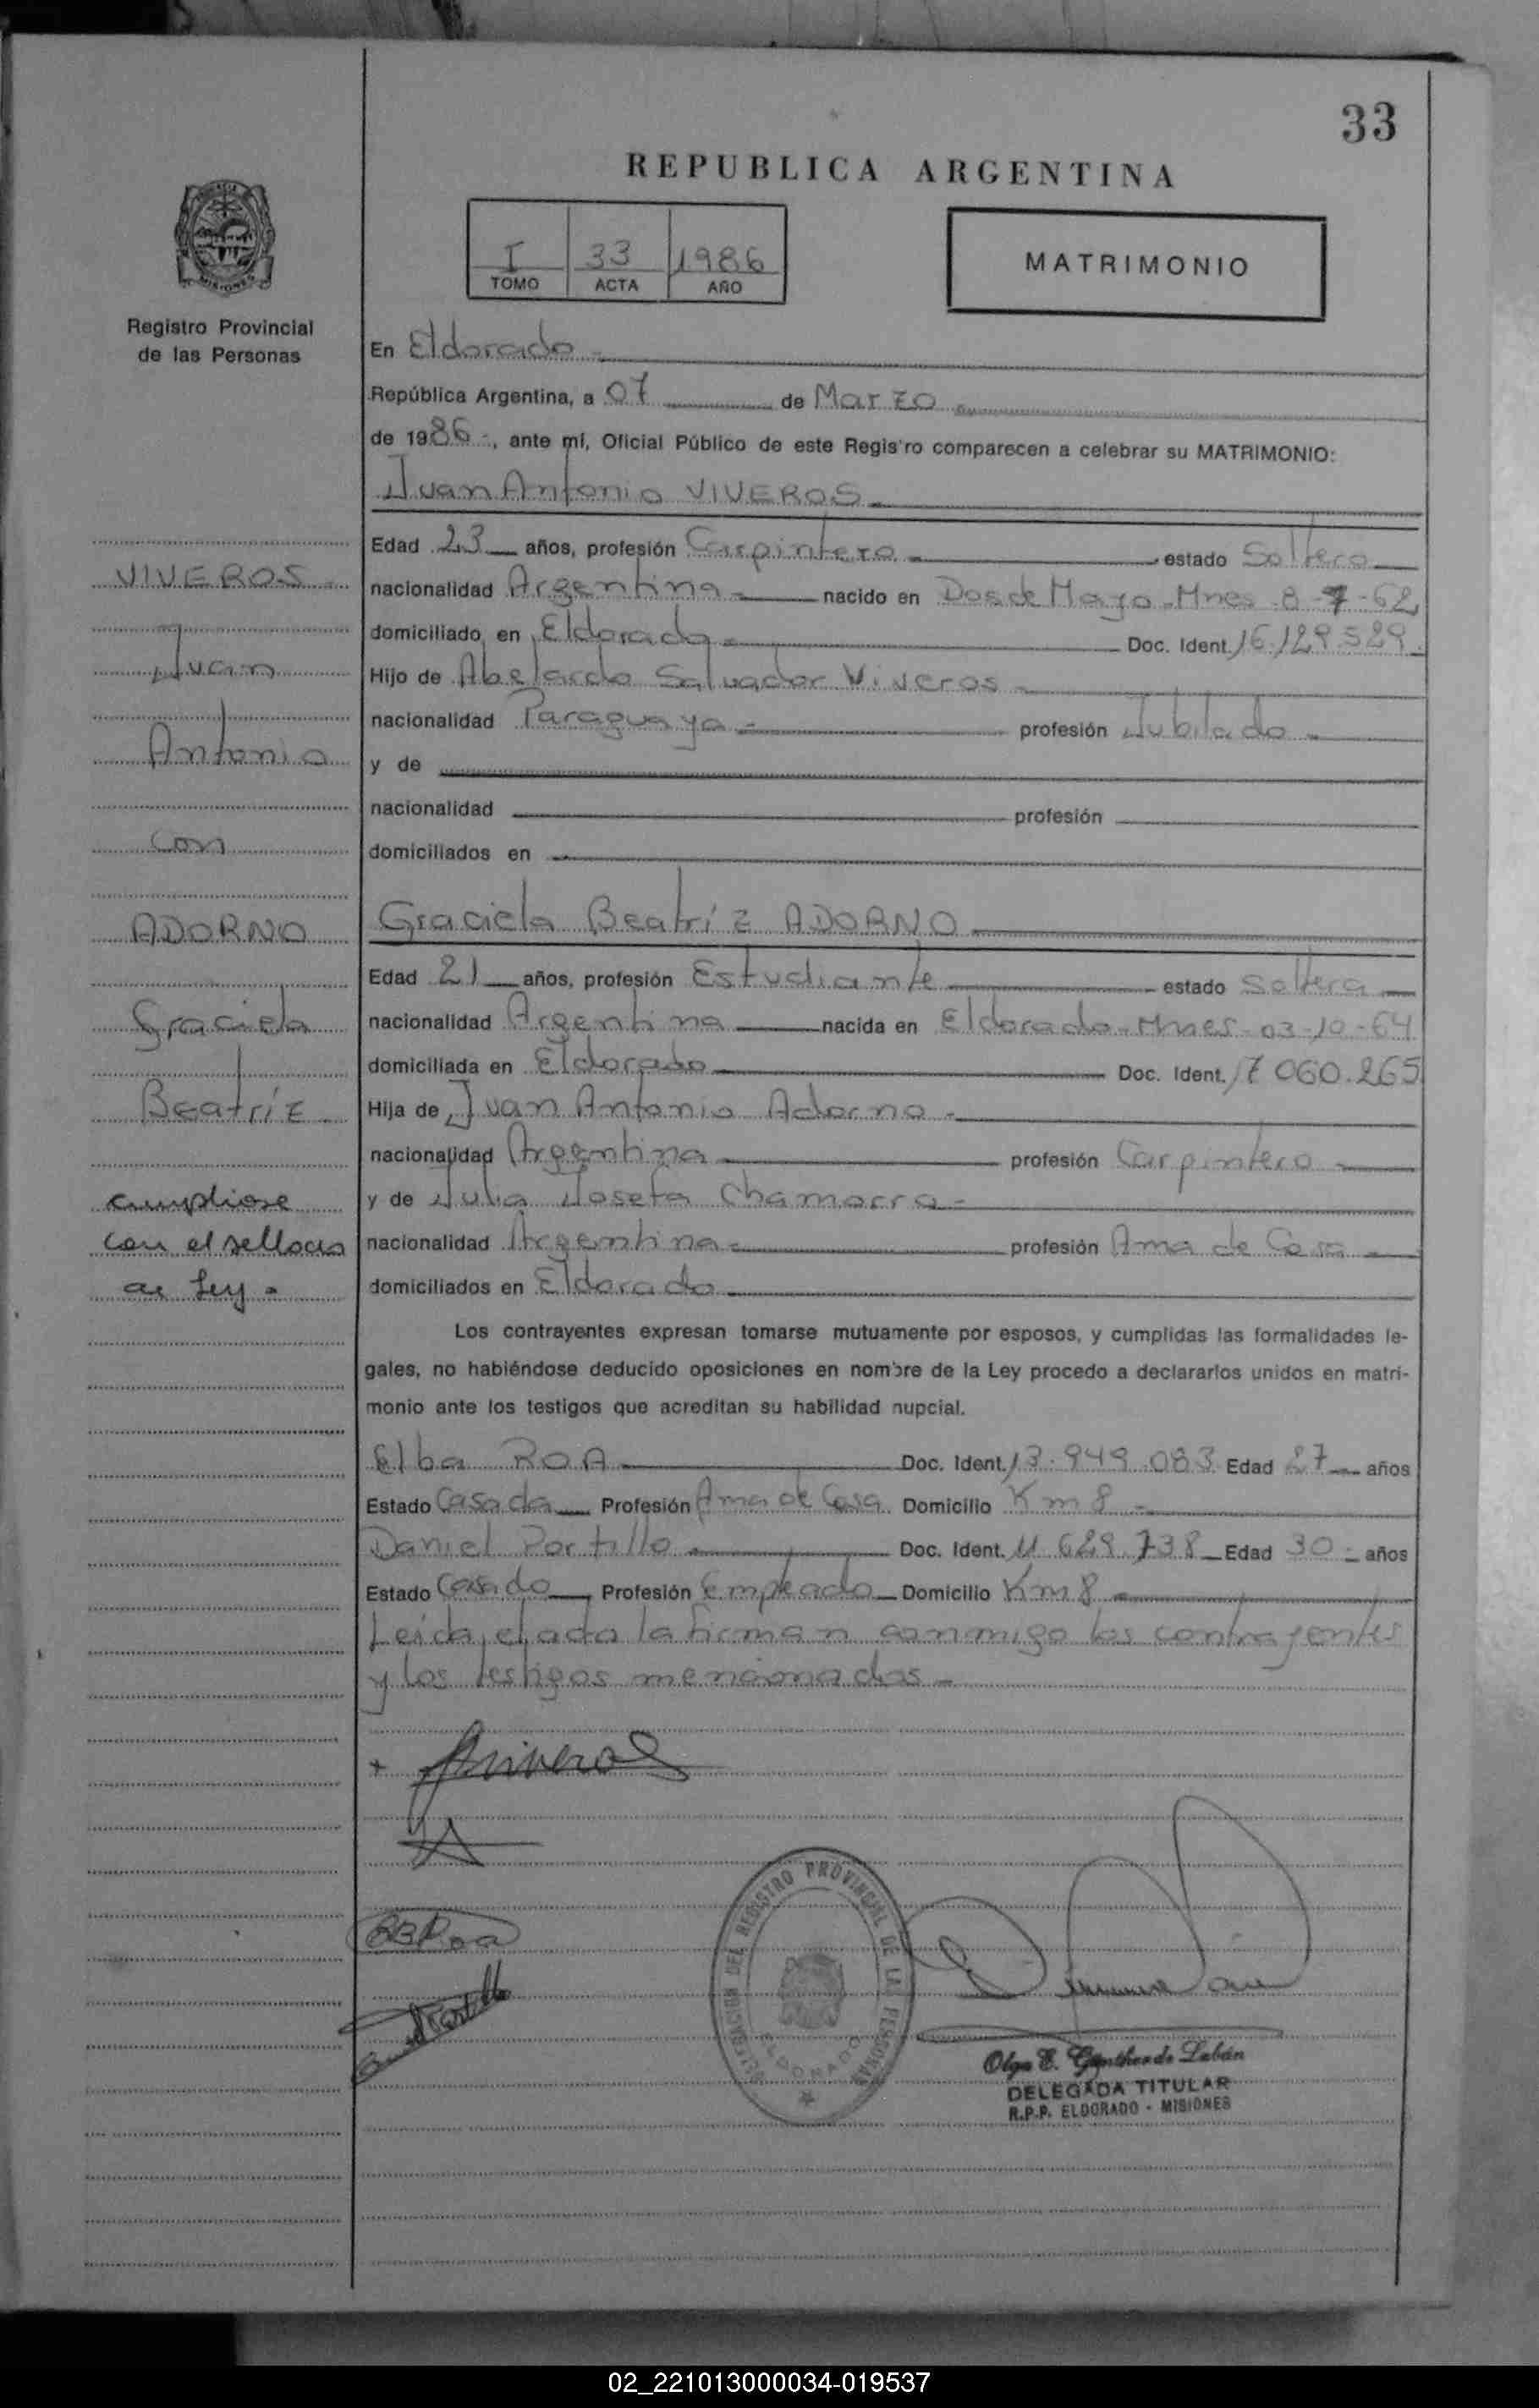 33
REPUBLICA ARGENTINA
I 33 1986
TOMO ACTA AÑO
MATRIMONIO
MISIONES
Registro Provincial
de las Personas
En Eldorado -
República Argentina, a 07 de Marzo
de 1986-, ante mí, Oficial Público de este Regis'ro comparecen a celebrar su MATRIMONIO:
Juan Antonio VIVEROS
Edad 23 años, profesión Carpintero - estado Soltero
nacionalidad Argentina - nacido en Dos de Mayo - Mnes 8-7-62
domiciliado en Eldorado - Doc. Ident. 16.129.529
Hijo de Abelardo Salvador Viveros -
nacionalidad Paraguaya - profesión Jubilado -
y de
nacionalidad profesión
domiciliados en
Graciela Beatríz ADORNO
Edad 21 años, profesión Estudiante estado Soltera
nacionalidad Argentina nacida en Eldorado - Mnes - 03-10-64
domiciliada en Eldorado Doc. Ident. 17 060.265
Hija de Juan Antonio Adorno -
nacionalidad Argentina profesión Carpintero -
y de Julia Josefa Chamorro -
nacionalidad Argentina - profesión Ama de Casa -
domiciliados en Eldorado
Los contrayentes expresan tomarse mutuamente por esposos, y cumplidas las formalidades le-
gales, no habiéndose deducido oposiciones en nombre de la Ley procedo a declararlos unidos en matri-
monio ante los testigos que acreditan su habilidad nupcial.
Elba ROA Doc. Ident. 13.949.083 Edad 27 años
Estado Casada Profesión Ama de Casa Domicilio Km 8 -
Daniel Portillo Doc. Ident. 11 629.738 Edad 30 - años
Estado Casado Profesión Empleado Domicilio Km 8 -
Leida el acta la firman conmigo los contrayentes
y los testigos mencionados -
VIVEROS -
Juan
Antonio
con
ADORNO
Graciela
Beatríz
cumpliose
con el sellado
de Ley -
DELEGACION DEL REGISTRO PROVINCIAL DE LAS PERSONAS
ELDORADO
Olga E. Günther de Labán
DELEGADA TITULAR
R.P.P. ELDORADO - MISIONES
02_221013000034-019537